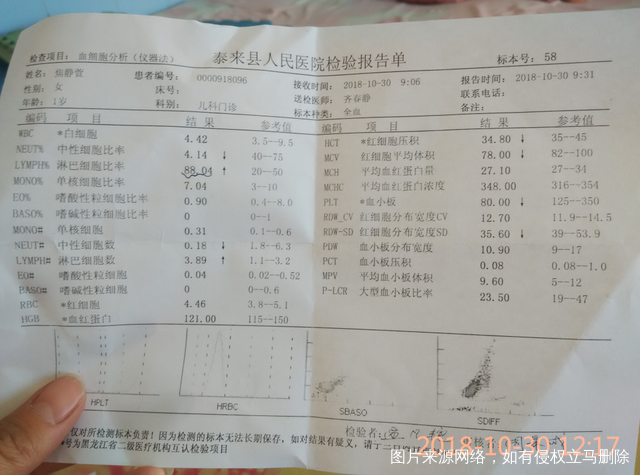 泰来县人民医院检验报告单
检查项目: 血细胞分析(仪器法) 标本号: 58
姓名: 焦静萱 患者编号: 0000918096 接收时间: 2018-10-30 9:06 报告时间: 2018-10-30 9:31
性别: 女 床号: 送检医师: 齐春静 联系电话:
年龄: 1岁 科别: 儿科门诊 标本种类: 全血 备注:
编码 项目 结果 参考值 编码 项目 结果 参考值
WBC *白细胞 4.42 3.5--9.5
NEUT% 中性细胞比率 4.14 ↓ 40--75
LYMPH% 淋巴细胞比率 88.04 ↑ 20--50
MONO% 单核细胞比率 7.04 3--10
EO% 嗜酸性粒细胞比率 0.90 0.4--8.0
BASO% 嗜碱性粒细胞比率 0 0--1
MONO# 单核细胞 0.31 0.1--0.6
NEUT# 中性细胞数 0.18 ↓ 1.8--6.3
LYMPH# 淋巴细胞数 3.89 ↑ 1.1--3.2
EO# 嗜酸性粒细胞 0.04 0.02--0.52
BASO# 嗜碱性粒细胞 0 0--0.6
RBC *红细胞 4.46 3.8--5.1
HGB *血红蛋白 121.00 115--150
HCT *红细胞压积 34.80 ↓ 35--45
MCV 红细胞平均体积 78.00 ↓ 82--100
MCH 平均血红蛋白量 27.10 27--34
MCHC 平均血红蛋白浓度 348.00 316--354
PLT *血小板 80.00 ↓ 125--350
RDW_CV 红细胞分布宽度CV 12.70 11.9--14.5
RDW-SD 红细胞分布宽度SD 35.60 ↓ 39--53.9
PDW 血小板分布宽度 10.90 9--17
PCT 血小板压积 0.08 0.08--1.0
MPV 平均血小板体积 9.60 5--12
P-LCR 大型血小板比率 23.50 19--47
HPLT HRBC SBASO SDIFF
检验者:
仅对所检测标本负责!因为检测的标本无法长期保存,如对结果有疑义,请于二日
*号为黑龙江省二级医疗机构互认检验项目
2018-10-30 12:17
图片来源网络,如有侵权立马删除